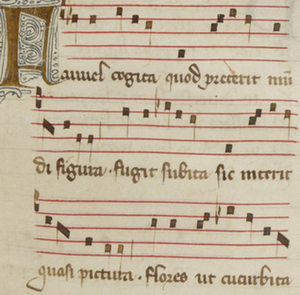 Fauuel cogita quod preterit mun
di figura . fugit subita sic interit
quasi pictura . flores ut cucurbita